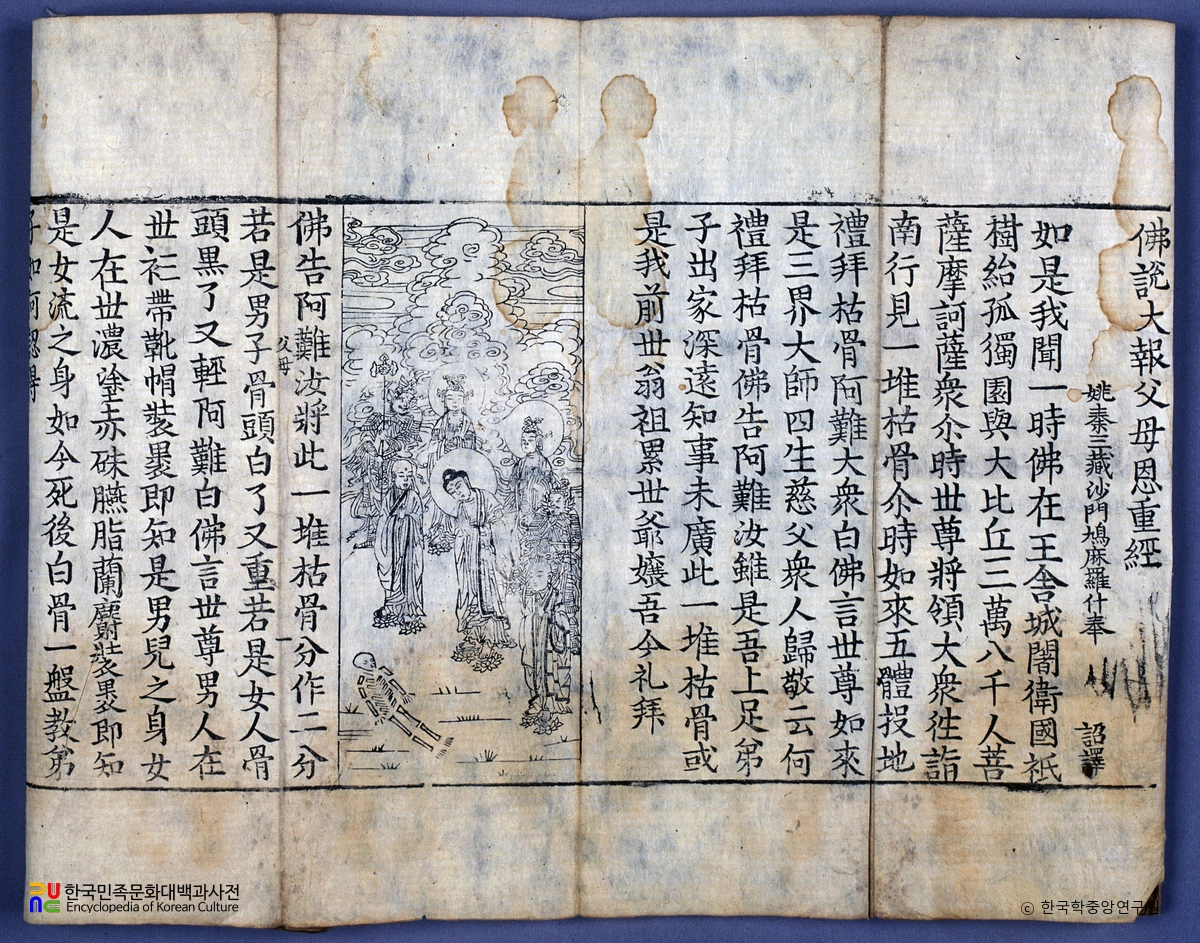 佛說大報父母恩重經
姚秦三藏沙門鳩麻羅什奉 詔譯
如是我聞一時佛在王舍城闍衛國祇
樹給孤獨園與大比丘三萬八千人菩
薩摩訶薩衆尒時世尊將領大衆徃詣
南行見一堆枯骨尒時如來五體投地
禮拜枯骨阿難大衆白佛言世尊如來
是三界大師四生慈父衆人歸敬云何
禮拜枯骨佛告阿難汝雖是吾上足弟
子出家深遠知事未廣此一堆枯骨或
是我前世翁祖累世爺孃吾今礼拜
佛告阿難汝將此一堆枯骨分作二分
父母
若是男子骨頭白了又重若是女人骨
頭黒了又輕阿難白佛言世尊男人在
世衫帶靴帽裝裹即知是男兒之身女
人在世濃塗赤硃臙脂蘭麝裝裹即知
是女流之身如今死後白骨一盤教弟
子如何認得
한국민족문화대백과사전
Encyclopedia of Korean Culture
ⓒ 한국학중앙연구원